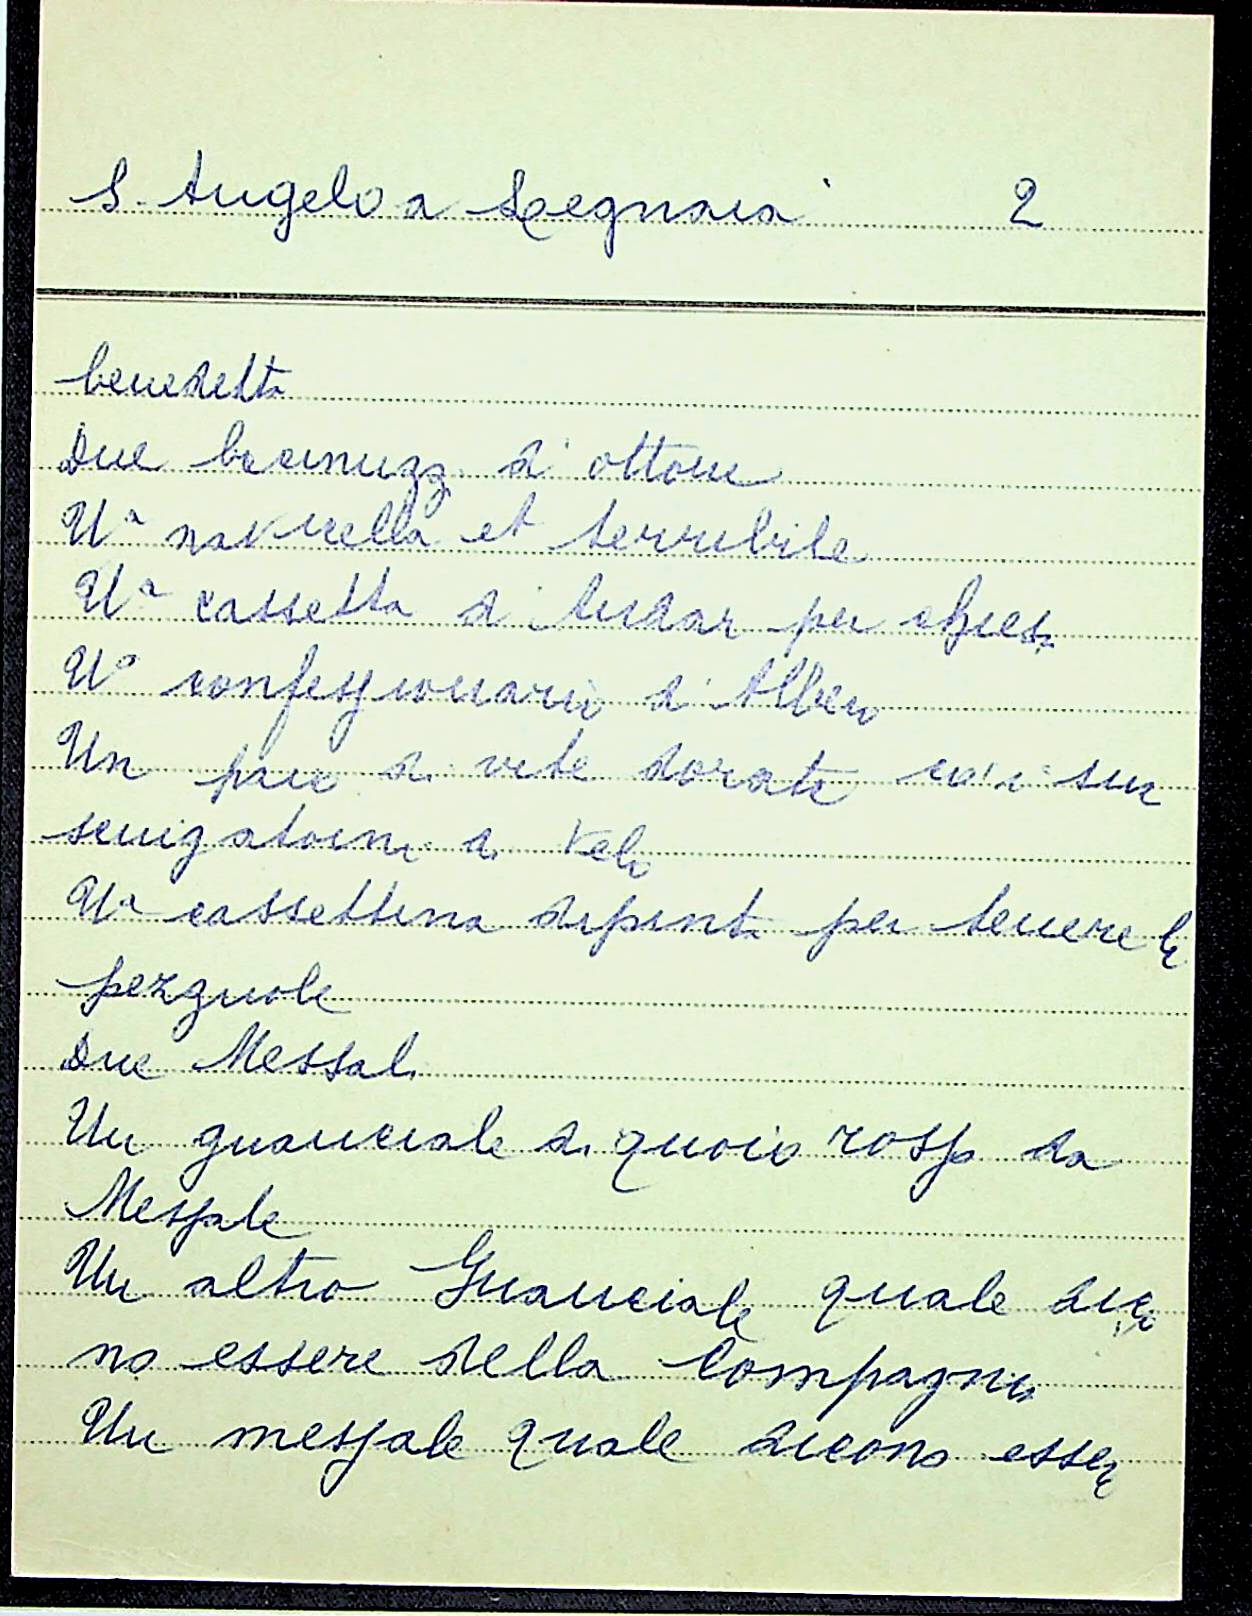 S. Angelo a Legnaia 2
benedetta
Due bacinuzzi d'ottone
Una navicella et terribile
Una cassetta d'andar per chiesa
Uo confessionario d'Albero
Un paio di dorate co' i sua
sciugatoini di velo
Una cassettina dipinta per tenere le
pezzuole
Due Messali
Un guanciale di quoio rosso da
Messale
Un altro Guanciale quale dico
no essere della Compagnia
Un messale quale dicono esser